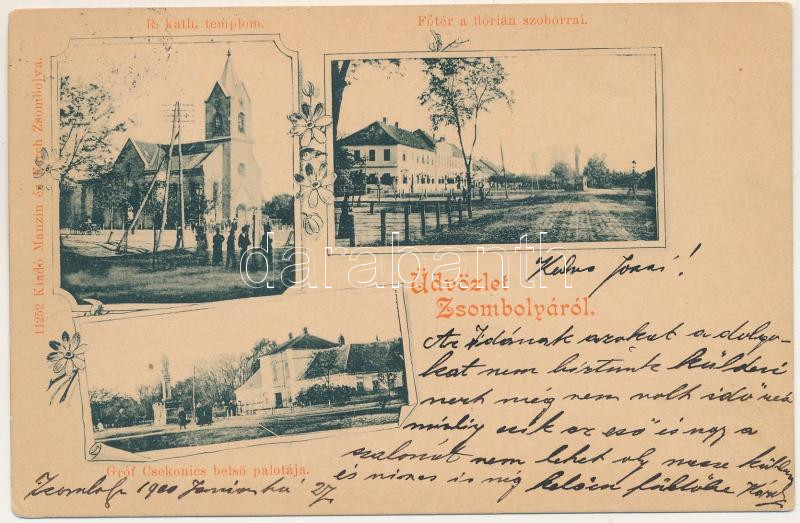 R. kath. templom.
Főtér a flórián szoborral.
11252 Kiadó Manzin és Zsombolya.
darabanth
Üdvözlet
Zsombolyáról.
Kedves !
Az Idának azokat a dolgo-
kat nem birtunk küldeni
mert még nem volt idő reá
mindig esik az eső és így a
szalonát nem lehet oly messze
és nincs is még
Gróf Csekonics belső palotája.
1900 27